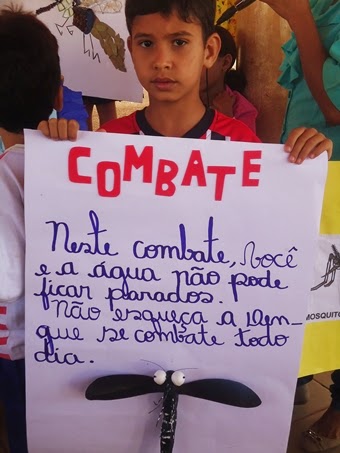 COMBATE
Neste combate, você
e a água não pode
ficar parados.
Não esqueça a Den-
gue se combate todo
dia.
MOSQUITO